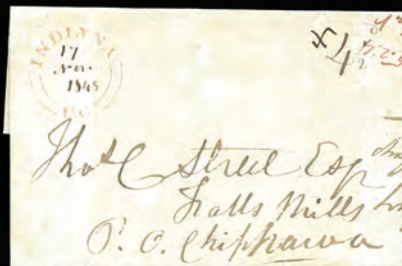 INDIANA
17
Nov.
1848
U.C.
4½
Thos C Street Esq
Falls Mills
P. O. Chippawa